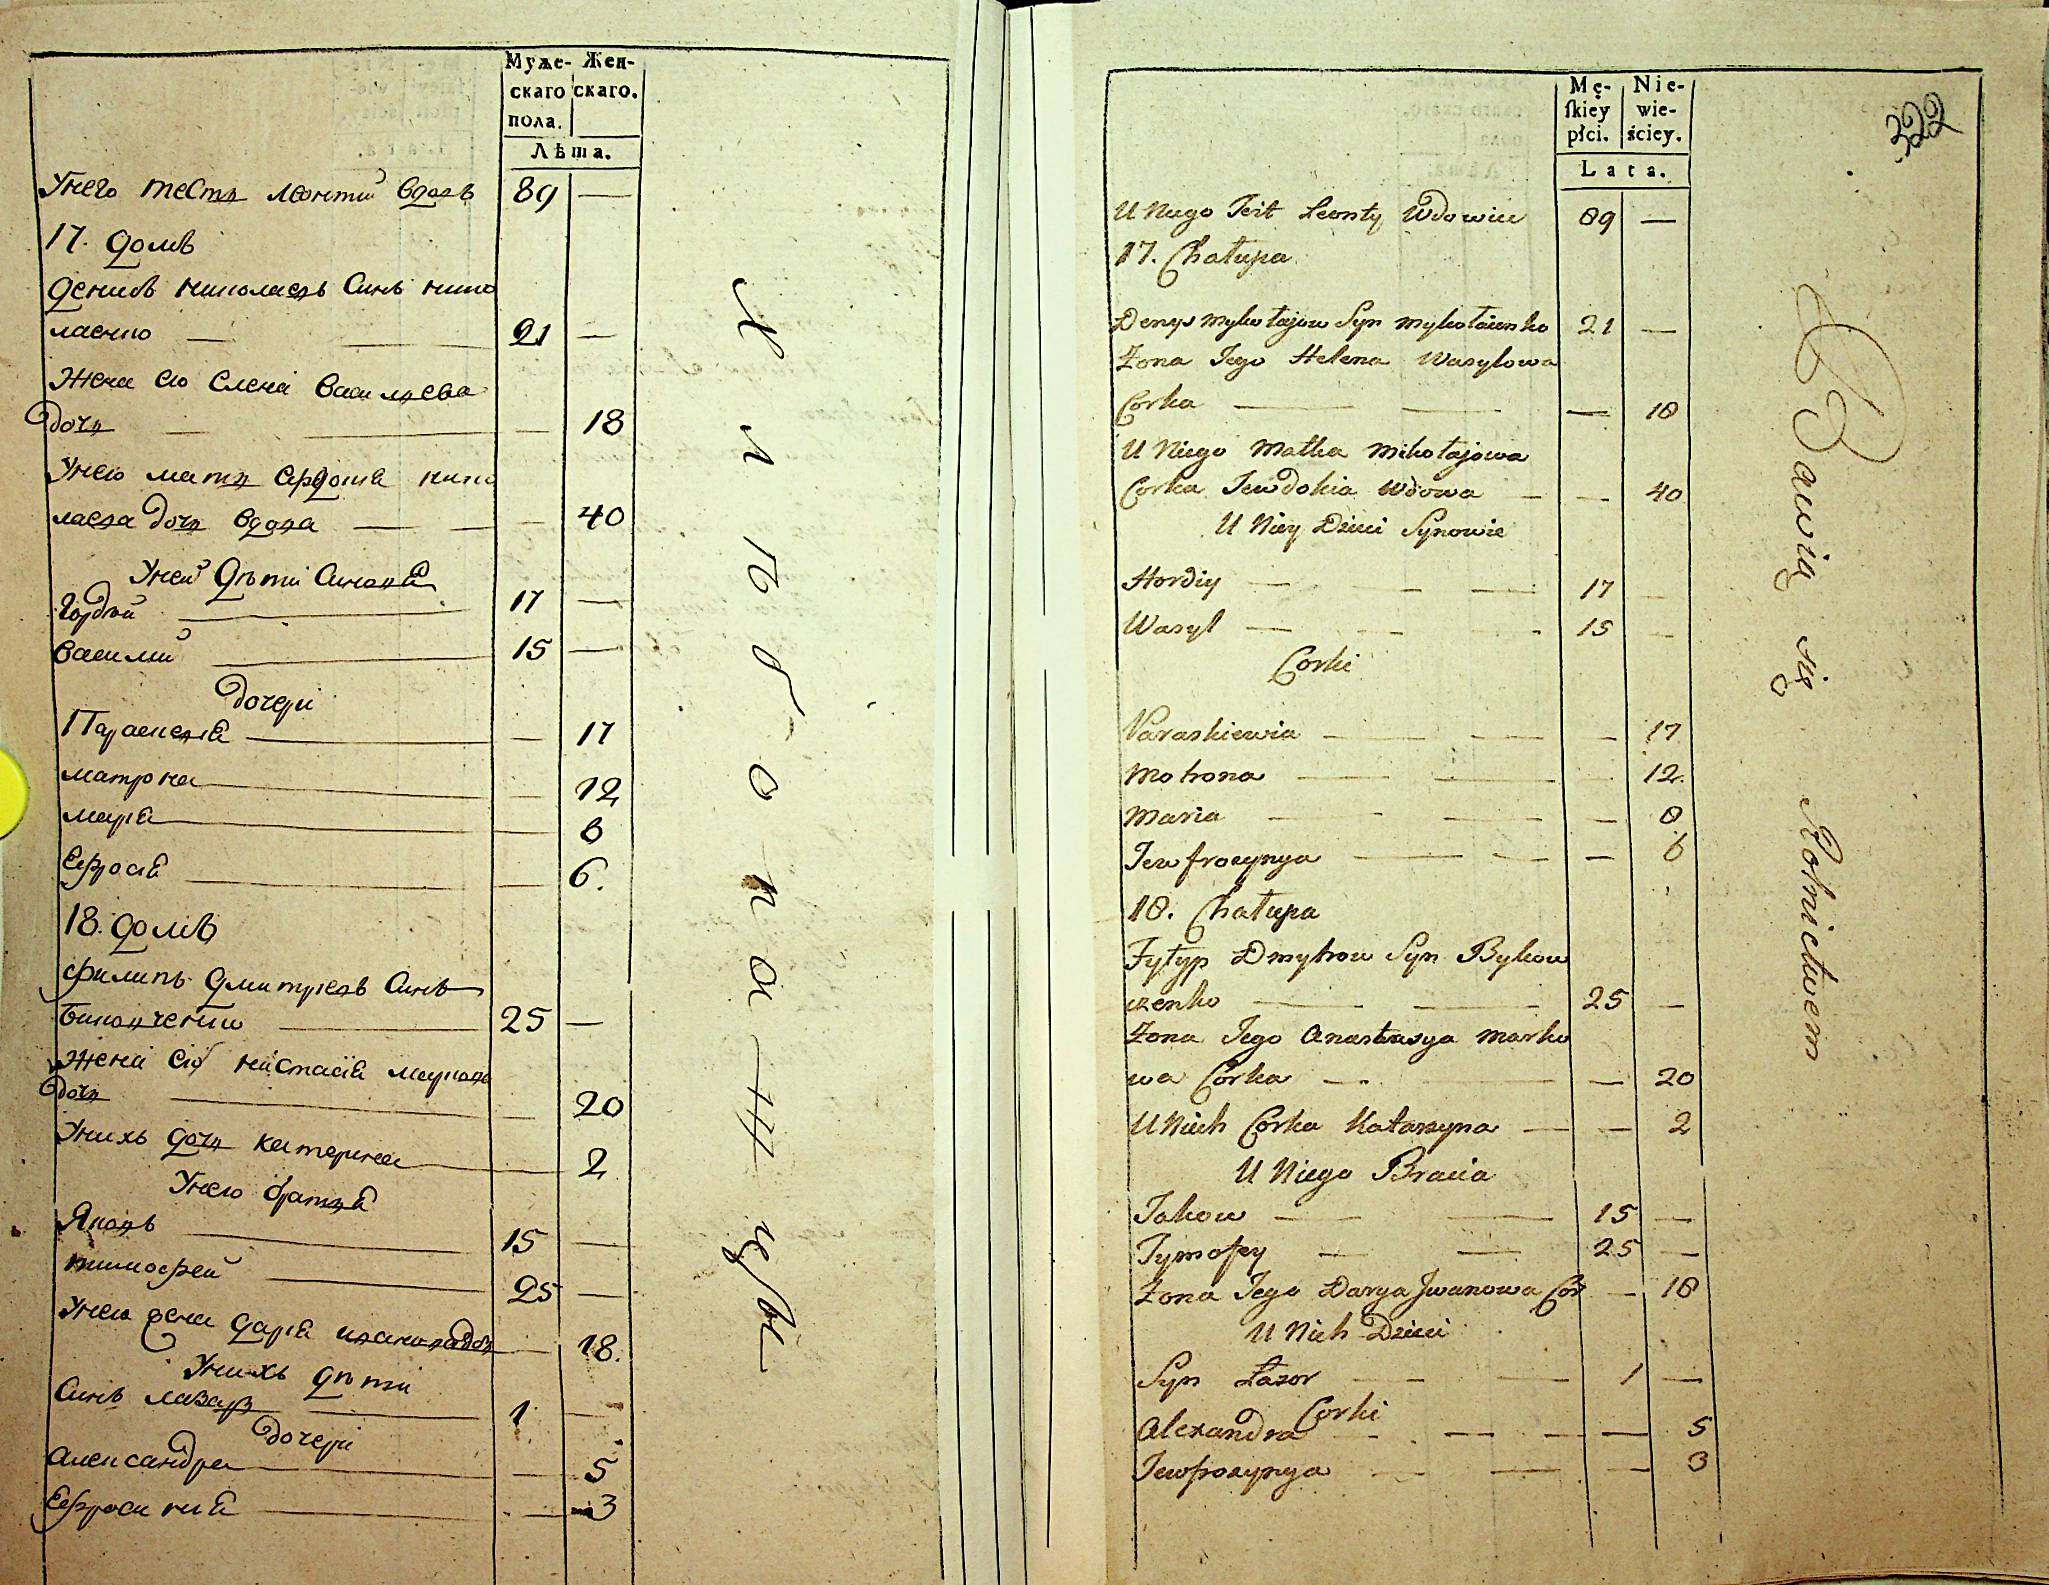 Муже- Жен-
скаго скаго.
пола.
Лѣта.
Унего тестъ леонтий вдовъ 89 —
17. домъ
денисъ николаевъ синъ нико
лаенко — 21 —
жена его елена василиева
дочь — — 18
Унего мати евдокия нико
лаева дочь вдова — — 40
Уней дѣти синовя
Гордѣй — 17 —
василий — 15 —
дочери
Параскевия — — 17
матрона — — 12
мария — — 8
Ефросия — — 6.
18. домъ
филипъ дмитриевъ синъ
Биковченко — 25 —
жена его настасия маркова
дочь — — 20
Унихъ дочь катерина — — 2
Унего братия
Яковъ — 15 —
тимофей — 25 —
Унего жена дария иванова доч — 18.
Унихъ дѣти
Синъ лазар — 1 —
дочери
александра — — 5
Ефросиния — — 3
Хлѣбопашцы
Mę- Nie-
skiey wie-
płci. ściey.
Lata.
322
U Niego Teść Leonty Wdowiec 89 —
17. Chałupa
Denys Mykołajow Syn Mykołaienko 21 —
Żona Jego Helena Wasylowa
Corka — — — 18
U Niego Matka Mikołajowa
Corka Jewdokia Wdowa — — 40
U Niey Dzieci Synowie
Hordiy — — — 17 —
Wasyl — — — 15 —
Corki
Paraskiewia — — — 17
Motrona — — — 12.
Maria — — — 8
Jewfrozynya — — — 6
18. Chałupa
Fyłyp Dmytrow Syn Bykow
czenko — — 25 —
Żona Jego Anastasya Marko
wa Corka — — — 20
U Nich Corka Katarzyna — — 2
U Niego Bracia
Jakow — — 15 —
Tymofey — — 25 —
Żona Jego Darya Jwanowa Cor — 18
U Nich Dzieci
Syn Łazor — — 1 —
Corki
Alexandra — — — — 5
Jewfrozynya — — — 3
Bawią się Rolnictwem